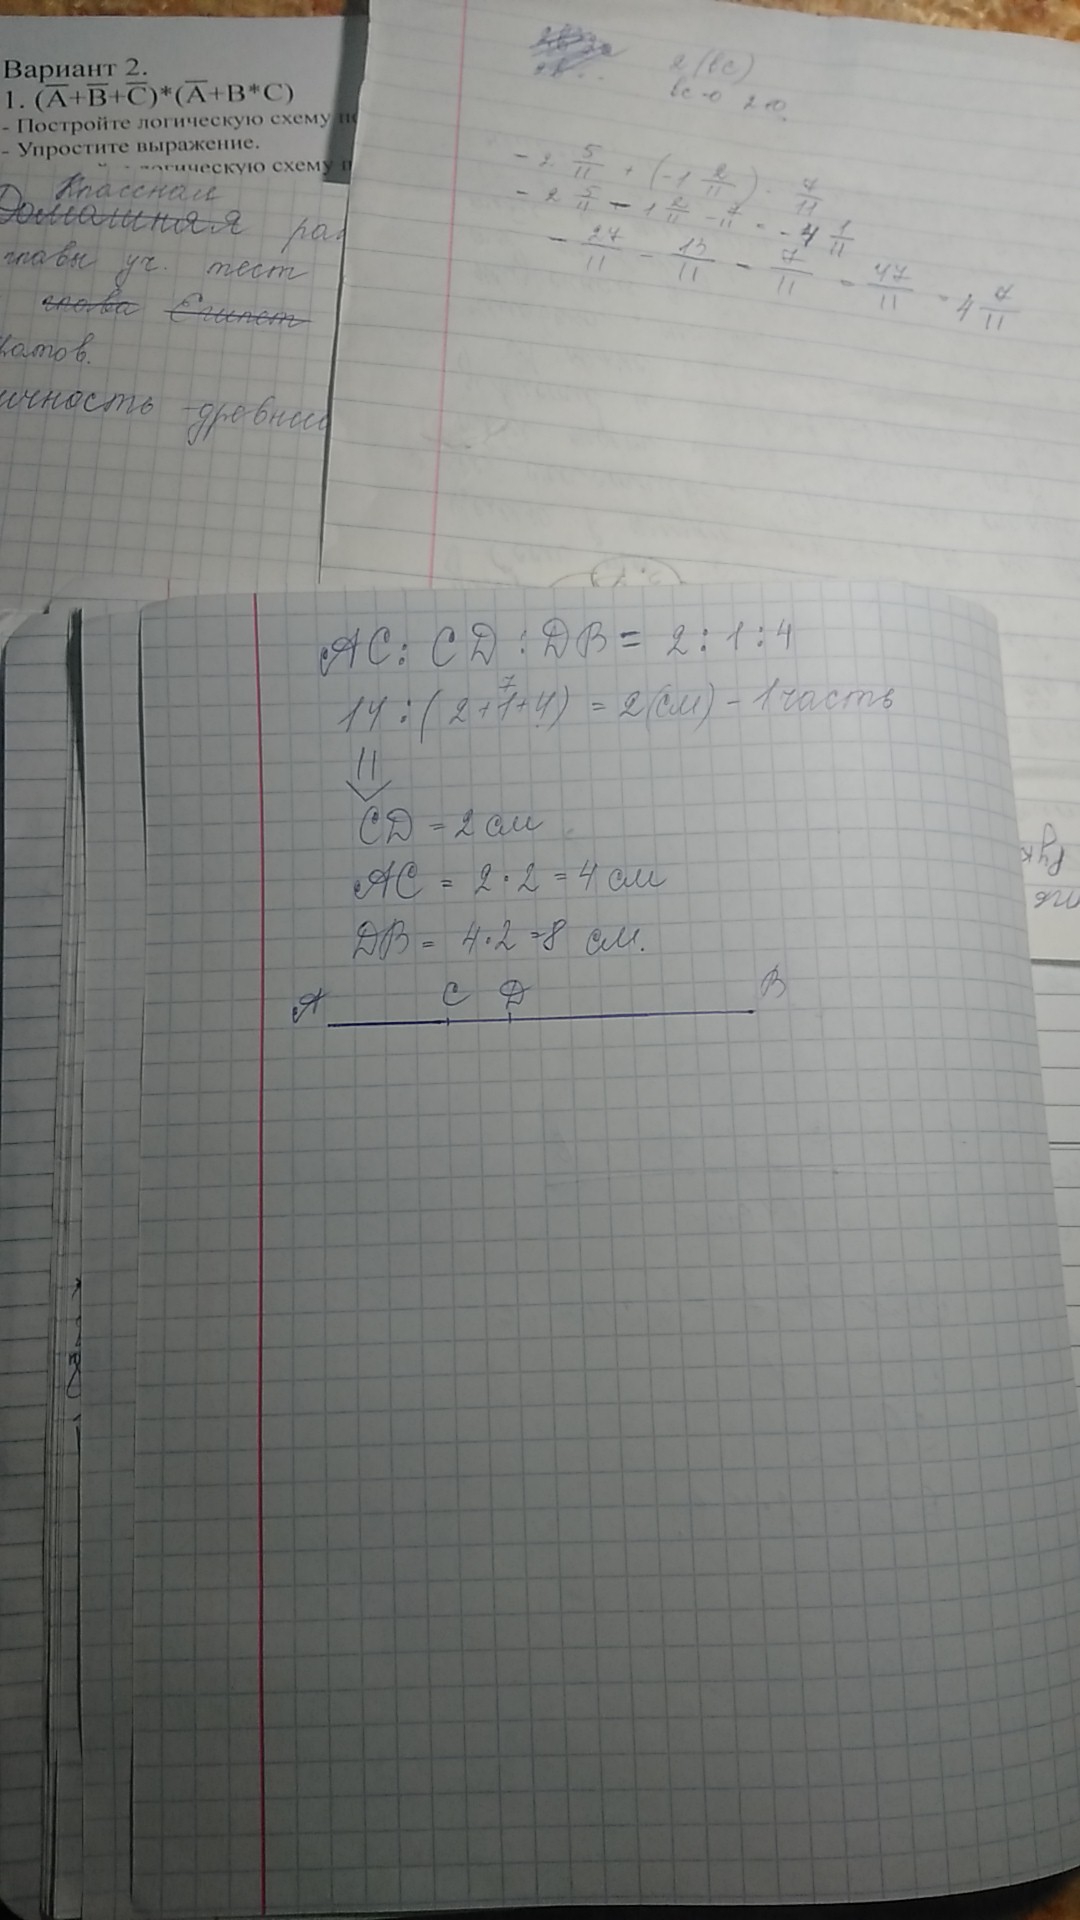 Вариант 2.
1. (A̅+B̅+C̅)*(A̅+B*C)
- Постройте логическую схему
- Упростите выражение.
логическую схему
Классная
Домашняя
главы уч. тест
Египет
древн
2(вс)
- 2 5/11 + (-1 2/11) - 7/11
- 2 5/11 - 1 2/11 - 7/11 = - 4 1/11
- 27/11 - 13/11 - 7/11 = 47/11 = 4 7/11
AC : CD : DB = 2 : 1 : 4
7
14 : (2+1+4) = 2(см) - 1 часть
⇓
CD = 2 см
AC = 2 · 2 = 4 см
DB = 4 · 2 = 8 см.
A C D B